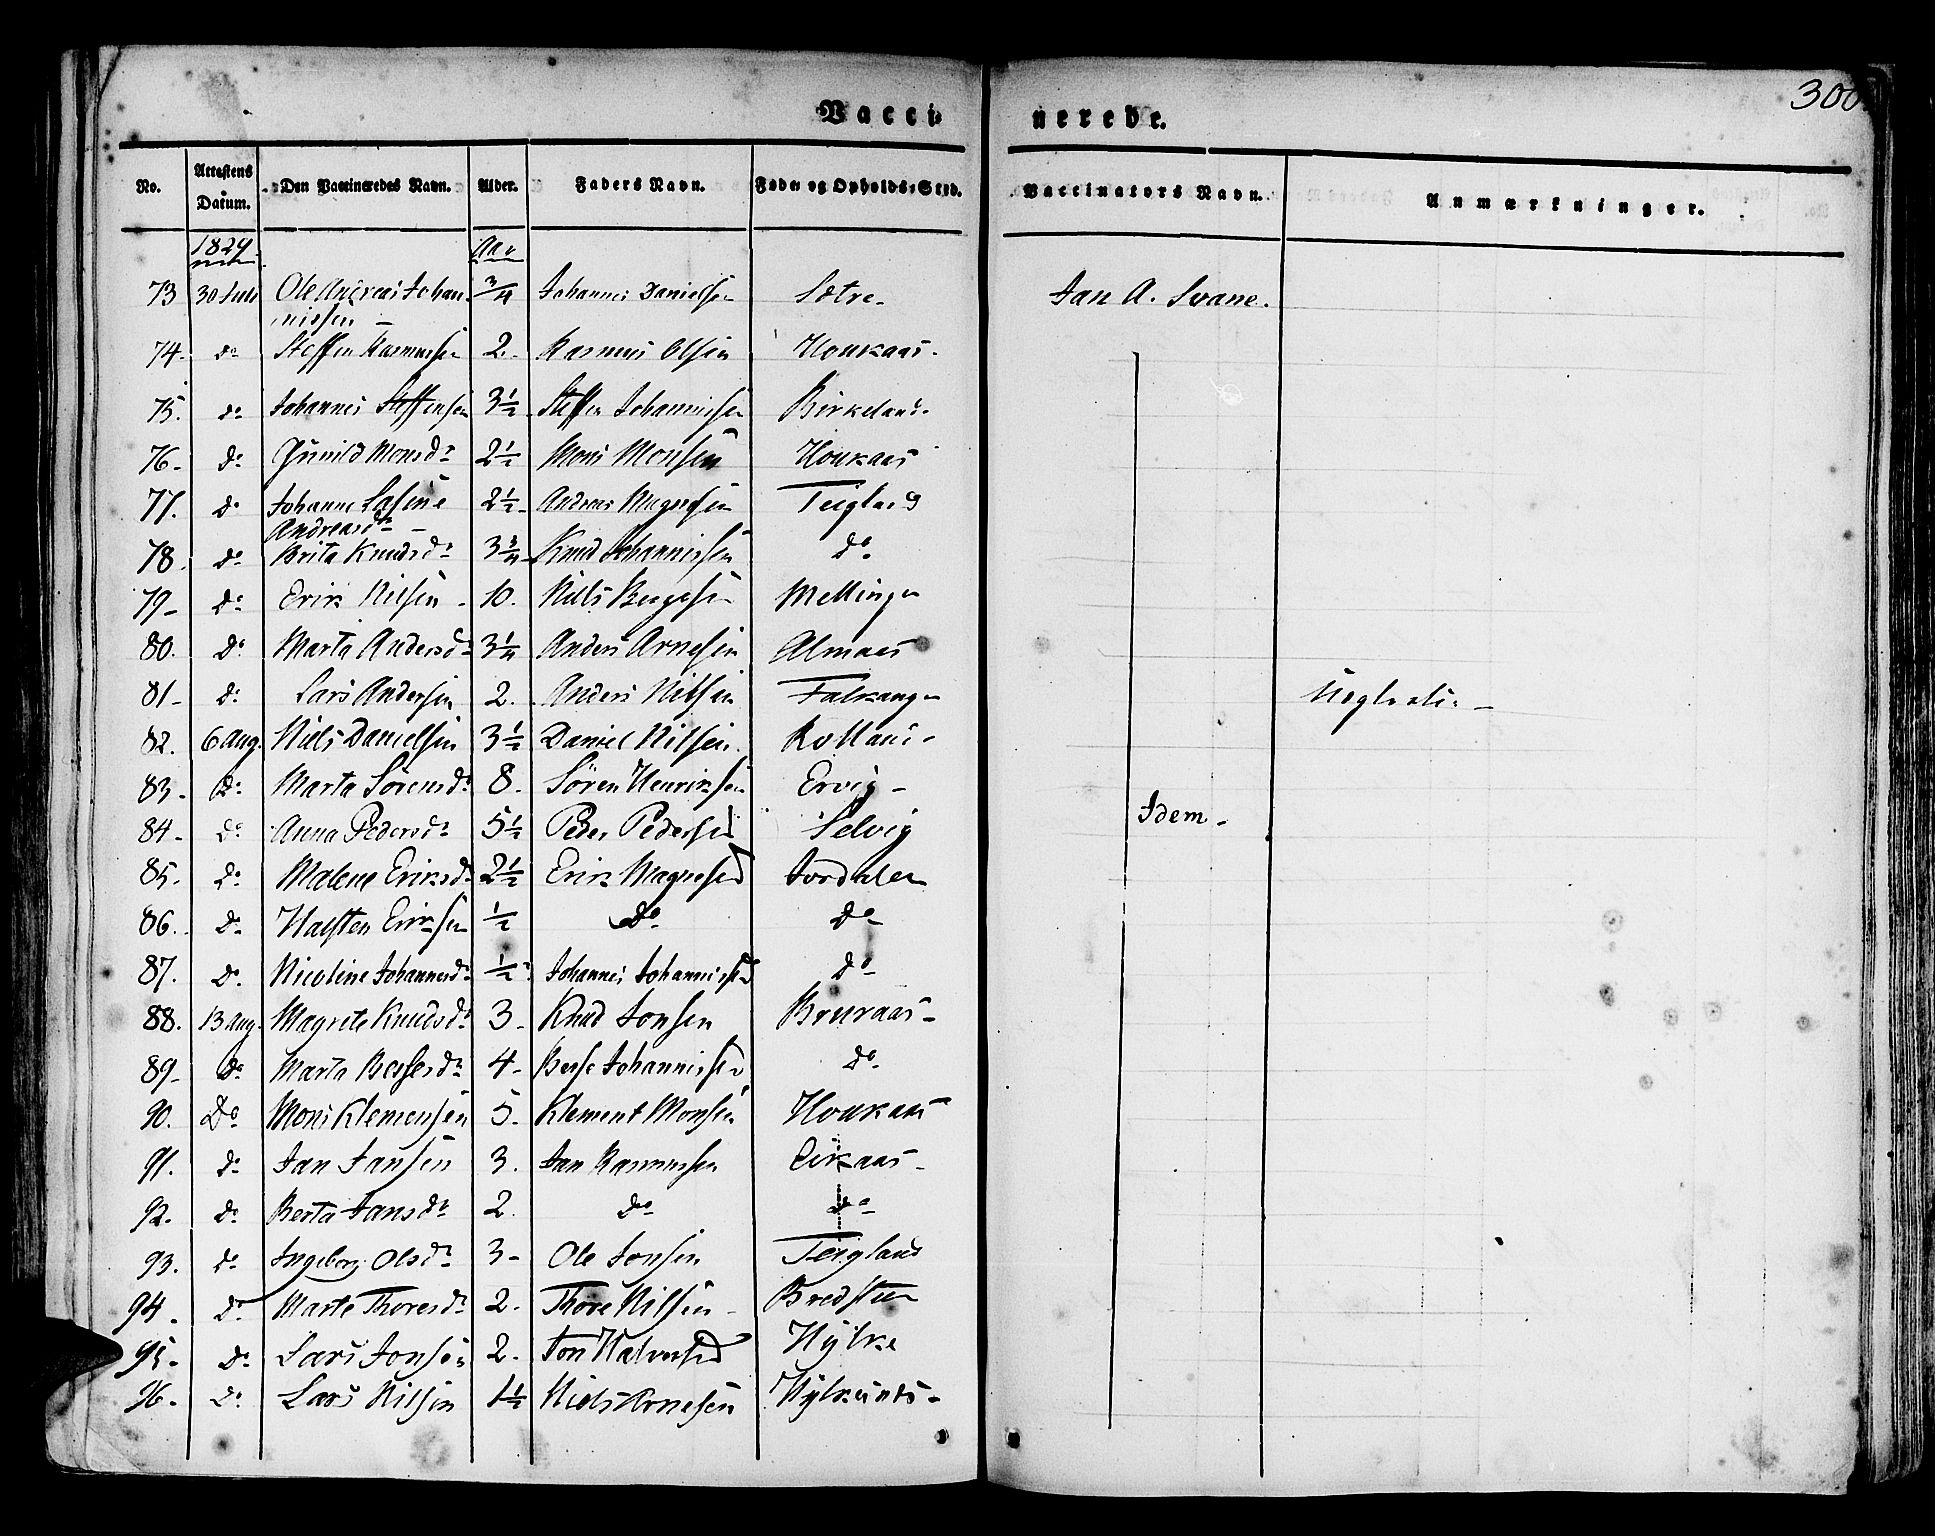 300
Vacci-
nerede.
No. Attestens Datum. Den Vaccineredes Navn. Alder. Faders Navn. Føde- og Opholds-Sted. Vaccinators Navn. Anmærkninger.
1824 Aar
73 30 Juli Ole Andreas Johan- 3/4 Johannes Danielsen Sætre Jan A. Svane.
nissen
74 do Steffen Rasmussen 2 Rasmus Olsen Houkaas
75. do Johannes Steffensen 3 1/2 Steffen Johannissen Birkeland
76 do Gunild Monsdr 2 1/2 Mons Monsen Houkaas
77. do Johanne 2 1/2 Andreas Magnesen Teigland
Andreasdr
78. do Brita Knudsdr 3 3/4 Knud Johannissen do
79 do Erik Nilsen 10. Niels Mellingen
80. do Marta Andersdr 3 1/4 Anders Arnesen Almaas
81 do Lars Andersen 2. Anders Nilsen Falkangen
82. 6 Aug. Niels Danielsen 3 1/2 Daniel Nilsen Rolland
83 do Marta Sörensdr 8. Sören Henriksen Ervig
84 do Anna Pedersdr 5 1/2 Peder Pedersen Selvig Idem
85. do Malene Eriksdr 2 1/2 Erik Magnesen Jordalen
86. do Halsten Eriksen 1/2 do do
87. do Nicoline Johannesdr 1/2 Johannes Johannissen do
88. 13 Aug. Magrete Knudsdr 3 Knud Jonsen Bruraas
89 do Marta Bessesdr 4 Besse Johannissen do
90. Do Mons Klemensen 5. Klement Monsen Houkaas
91. do Jan Jansen 3. Jan Rasmussen Eikaas
92. do Berta Jansdr 2. do do
93. do Ingeborg Olsdr 3 Ole Jonsen Teigland
94. do Marte Thoresdr 2. Thore Nilsen Bredsteen
95. do Lars Jonsen 2. Jon Halversen Hylke
96. do Lars Nilsen 1 1/2 Niels Arnesen